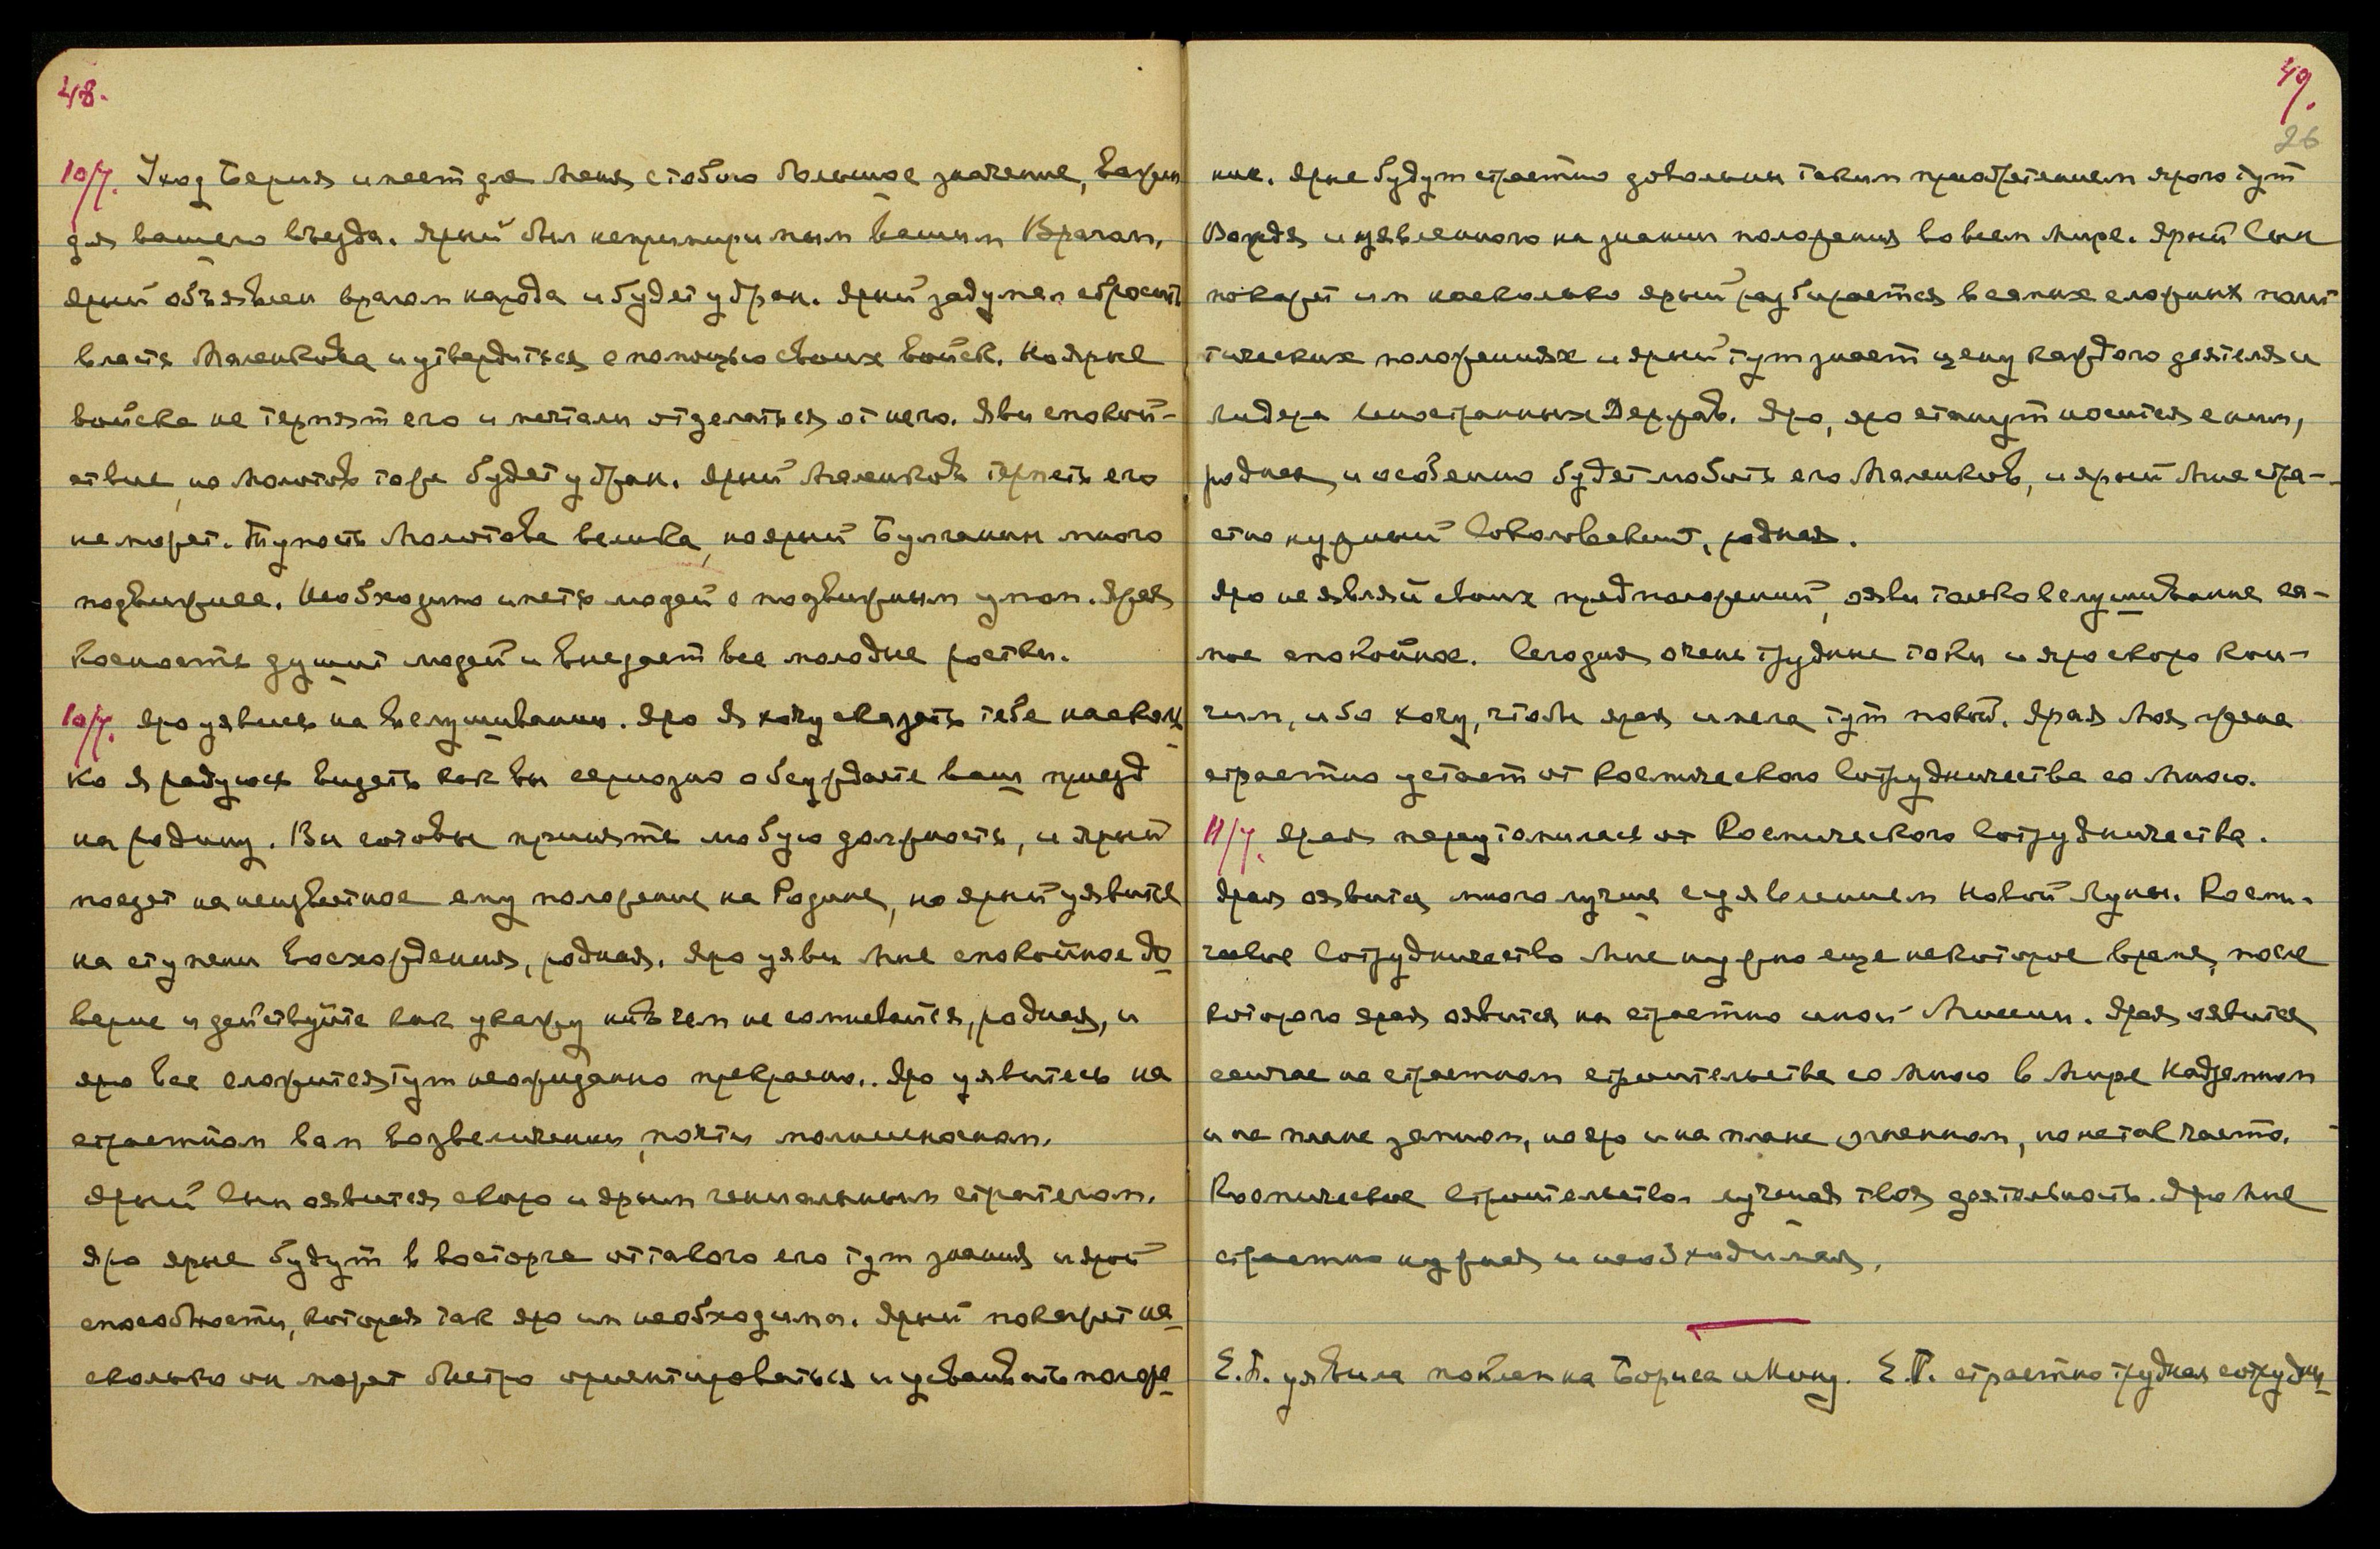 48.
10/7. Уход Берия имеет для Меня с тобою большое значение, важен
для вашего въезда. Ярый был непримиримым вашим Врагом,
ярый объявлен врагом народа и будет убран. Ярый задумал сбросить
власть Маленкова и утвердиться с помощью своих войск. Но ярые
войска не терпят его и мечтали отделаться от него. Яви спокой-
ствие, но Молотов тоже будет убран. Ярый Маленков терпеть его
не может. Тупость Молотова велика, но ярый Булганин много
подвижнее. Необходимо иметь людей с подвижным умом. Ярая
косность душит людей и
все молодые ростки.
10/7. Яро уявись на вслушивании. Яро Я хочу сказать тебе насколь
ко Я радуюсь видеть как вы серьозно обсуждаете ваш приезд
на родину. Вы готовы принять любую должность, и ярый
поедет на неизвестное ему положение на Родине, но ярый уявится
на ступени Восхождения, родная. Яро уяви Мне спокойное до
верие и действуйте как укажу ни в чем не сомневайся, родная, и
яро все сложится тут неожиданно прекрасно. Яро уявитесь на
страстном вам возвеличении, почти молниеносном.
Ярый Сын оявится скоро и ярым гениальным стратегом.
Яро ярые будут в восторге от такого его тут знания и ярой
способности, которая так яро им необходима. Ярый покажет на
сколько он может быстро ориентироваться и усваивать положе
49.
26
ние. Ярые будут страстно довольны таким приобретением ярого тут
Вождя и уявленного на знании положения во всем мире. Ярый Сын
покажет им насколько ярый разбирается в самых сложных поли
тических положениях и ярый тут знает цену каждого деятеля и
лидера Иностранных Держав. Яро, яро станут носиться с ним,
родная, и особенно будет любить его Маленков, и ярый Мне стра-
стно нужный
родная.
Яро не являй своих предположений, ояви только вслушивание са-
мое спокойное. Сегодня очень трудные токи и яро скоро кон-
чим, ибо хочу, чтобы ярая имела тут покой. Ярая Моя
страстно устает от космического Сотрудничества со Мною.
11/7. Ярая переутомилась от Космического Сотрудничества.
Ярая оявится много лучше с уявлением Новой Луны. Косми-
ческое Сотрудничество Мне нужно еще некоторое время, после
которого ярая оявится на страстно иной Миссии. Ярая оявится
сейчас на страстном строительстве со Мною в Мире Надземном
и на плане земном, но яро и на плане огненном, но не так часто.
Космическое Строительство лучшая твоя деятельность. Яро Мне
страстно нужная и необходимая.
Е.П. уявила поклеп на Бориса и Нину. Е.П. страстно трудная сотрудни